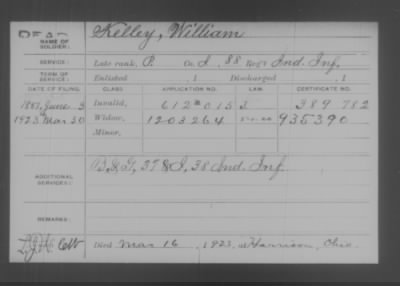 DEAD
NAME OF SOLDIER: Kelley, William
SERVICE: Late rank, P. Co. I, 88 Reg't Ind. Inf.
TERM OF SERVICE: Enlisted , 1 Discharged , 1
DATE OF FILING. CLASS. APPLICATION NO. LAW. CERTIFICATE NO.
1887, June 3 Invalid, 612 015 389 782
1923 Mar 30 Widow, 1203264 935390
Minor,
ADDITIONAL SERVICES: B & G, 37 & I, 38 Ind. Inf.
REMARKS:
Died Mar 16, 1923, at Harrison, Ohio.